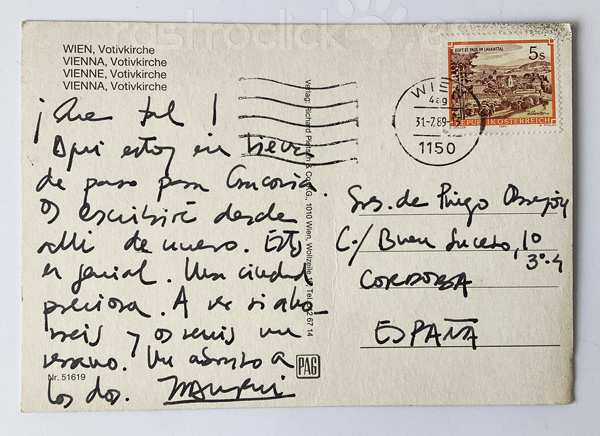 WIEN, Votivkirche
VIENNA, Votivkirche
VIENNE, Votivkirche
VIENNA, Votivkirche
¡Que tal!
Aqui estoy en
de paso para Cracovia.
Os escribiré desde
alli de nuevo. Esto
es genial. Una ciudad
preciosa. A ver si aho
rreis y os venis un
verano. Un abrazo a
los dos.
Nr. 51619
Verlag: Richard Pietsch & Co. KG., 1010 Wien, Wollzeile
PAG
WIEN
31-7.89-
1150
STIFT ST. PAUL IM LAVANTTAL
5s
REPUBLIK ÖSTERREICH
Sres. de Priego
C./ Buen Suceso, 10
3º-4
CORDOBA
ESPAÑA